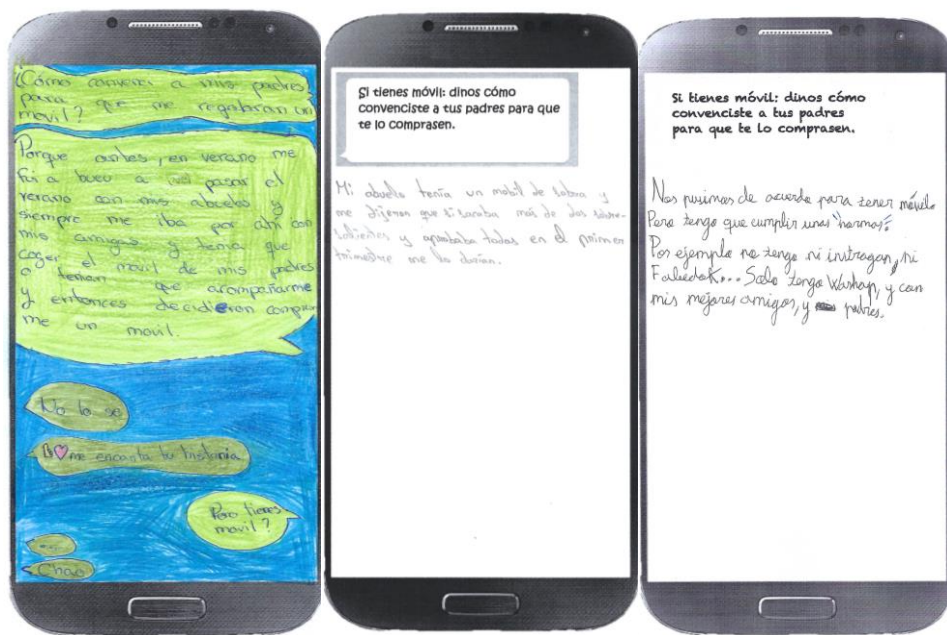 ¿Cómo convencí a mis padres
para que me regalaran un
movil?
Porque antes, en verano me
fui a a pasar el
verano con mis abuelos y
siempre me iba por ahí con
mis amigas y tenia que
coger el movil de mis padres
o tenian que acompañarme
y entonces decidieron comprar
me un movil.
No lo se
me encanta tu historia
Pero tienes
movil?
...
Chao
Si tienes móvil: dinos cómo
convenciste a tus padres para que
te lo comprasen.
Mi abuelo tenía un mobil de sobra y
me dijeron que si sacaba más de dos sobre-
salientes y aprobaba todas en el primer
trimestre me lo darían.
Si tienes móvil: dinos cómo
convenciste a tus padres
para que te lo comprasen.
Nos pusimos de acuerdo para tener móvil.
Pero tengo que cumplir unas "normas".
Por ejemplo no tengo ni instragan, ni
... Solo tengo Washap, y con
mis mejores amigos, y padres.